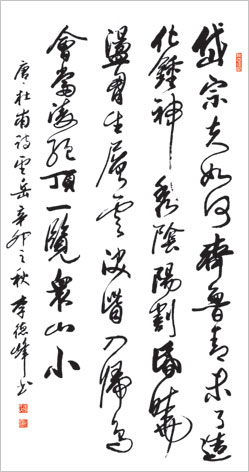 岱宗夫如何齊魯青未了造
化鍾神秀陰陽割昏曉
盪胷生層雲決眥入歸鳥
會當凌絕頂一覽衆山小
唐杜甫詩望岳辛卯之秋李德峰書